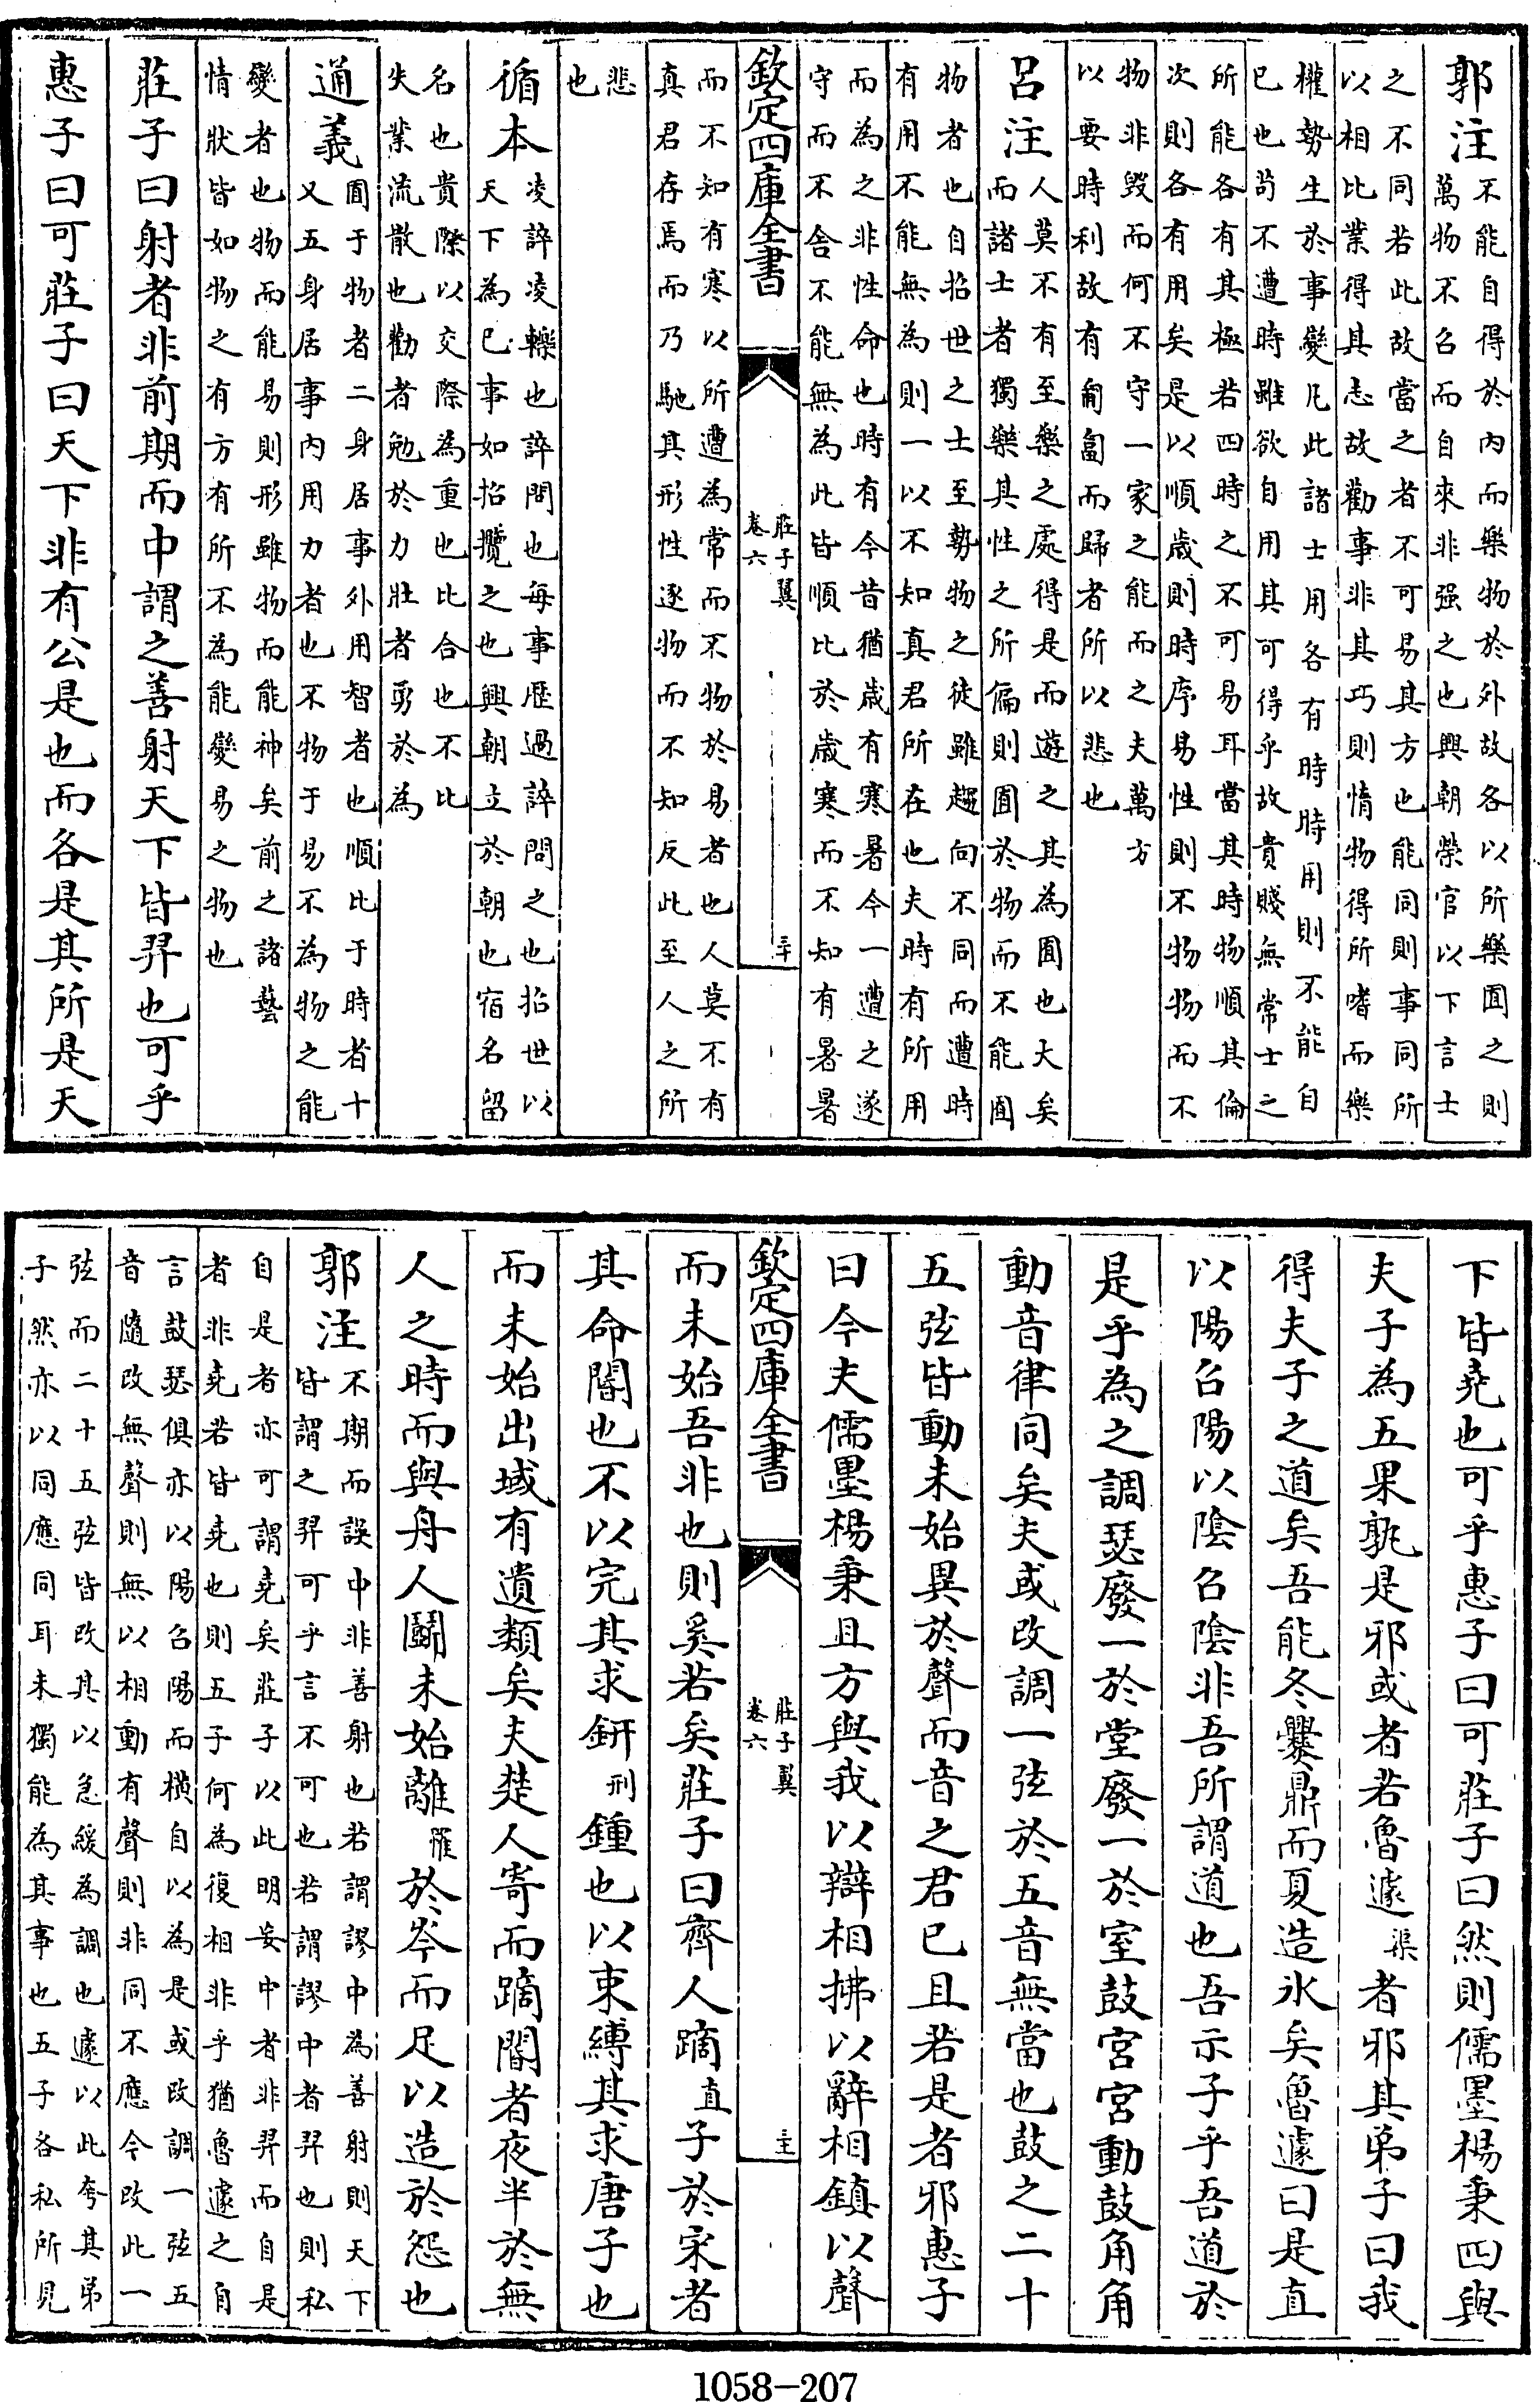 郭注不能自得於內而樂物於外故各以所樂囿之則
萬物不召而自來非强之也興朝榮官以下言士
之不同若此故當之者不可易其方也能同則事同所
以相比業得其志故勸事非其巧則惰物得所嗜而樂
權勢生於事變凡此諸士用各有時時用則不能自
已也茍不遭時雖欲自用其可得乎故貴賤無常士之
所能各有其極若四時之不可易耳當其時物順其倫
次則各有用矣是以順歲則時序易性則不物物而不
物非毀而何不守一家之能而之夫萬方
以要時利故有匍匐而歸者所以悲也
呂注人莫不有至樂之處得是而遊之其為囿也大矣
而諸士者獨樂其性之所偏則囿於物而不能囿
物者也自招世之士至勢物之徒雖趨向不同而遭時
有用不能無為則一以不知真君所在也夫時有所用
而為之非性命也時有今昔猶歲有寒暑今一遭之遂
守而不舍不能無為此皆順比於歲寒而不知有暑暑
欽定四庫全書
莊子翼
卷六
三十
而不知有寒以所遭為常而不物於易者也人莫不有
真君存焉而乃馳其形性逐物而不知反此至人之所
悲
也
循本凌誶凌轢也誶問也每事歷過誶問之也招世以
天下為已事如招攬之也興朝立於朝也宿名留
名也貴際以交際為重也比合也不比
失業流散也勸者勉於力壯者勇於為
通義囿于物者二身居事外用智者也順比于時者十
又五身居事內用力者也不物于易不為物之能
變者也物而能易則形雖物而能神矣前之諸藝
情狀皆如物之有方有所不為能變易之物也
莊子曰射者非前期而中謂之善射天下皆羿也可乎
惠子曰可莊子曰天下非有公是也而各是其所是天
下皆堯也可乎惠子曰可莊子曰然則儒墨楊秉四與
夫子為五果孰是邪或者若魯遽渠者邪其弟子曰我
得夫子之道矣吾能冬爨鼎而夏造冰矣魯遽曰是直
以陽召陽以陰召陰非吾所謂道也吾示子乎吾道於
是乎為之調瑟廢一於堂廢一於室鼓宮宮動鼓角角
動音律同矣夫或改調一弦於五音無當也鼓之二十
五弦皆動未始異於聲而音之君已且若是者邪惠子
曰今夫儒墨楊秉且方與我以辯相拂以辭相鎮以聲
欽定四庫全書
莊子翼
卷六
三十一
而未始吾非也則奚若矣莊子曰齊人蹢直子於宋者
其命閽也不以完其求鈃刑鍾也以束縛其求唐子也
而未始出域有遺類矣夫楚人寄而蹢閽者夜半於無
人之時而與舟人鬭未始離罹於岑而足以造於怨也
郭注不期而誤中非善射也若謂謬中為善射則天下
皆謂之羿可乎言不可也若謂謬中者羿也則私
自是者亦可謂堯矣莊子以此明妄中者非羿而自是
者非堯若皆堯也則五子何為復相非乎猶魯遽之自
言鼓瑟俱亦以陽召陽而橫自以為是或改調一弦五
音隨改無聲則無以相動有聲則非同不應今改此一
弦而二十五弦皆改其以急緩為調也遽以此夸其弟
子然亦以同應同耳未獨能為其事也五子各私所見
1058-207